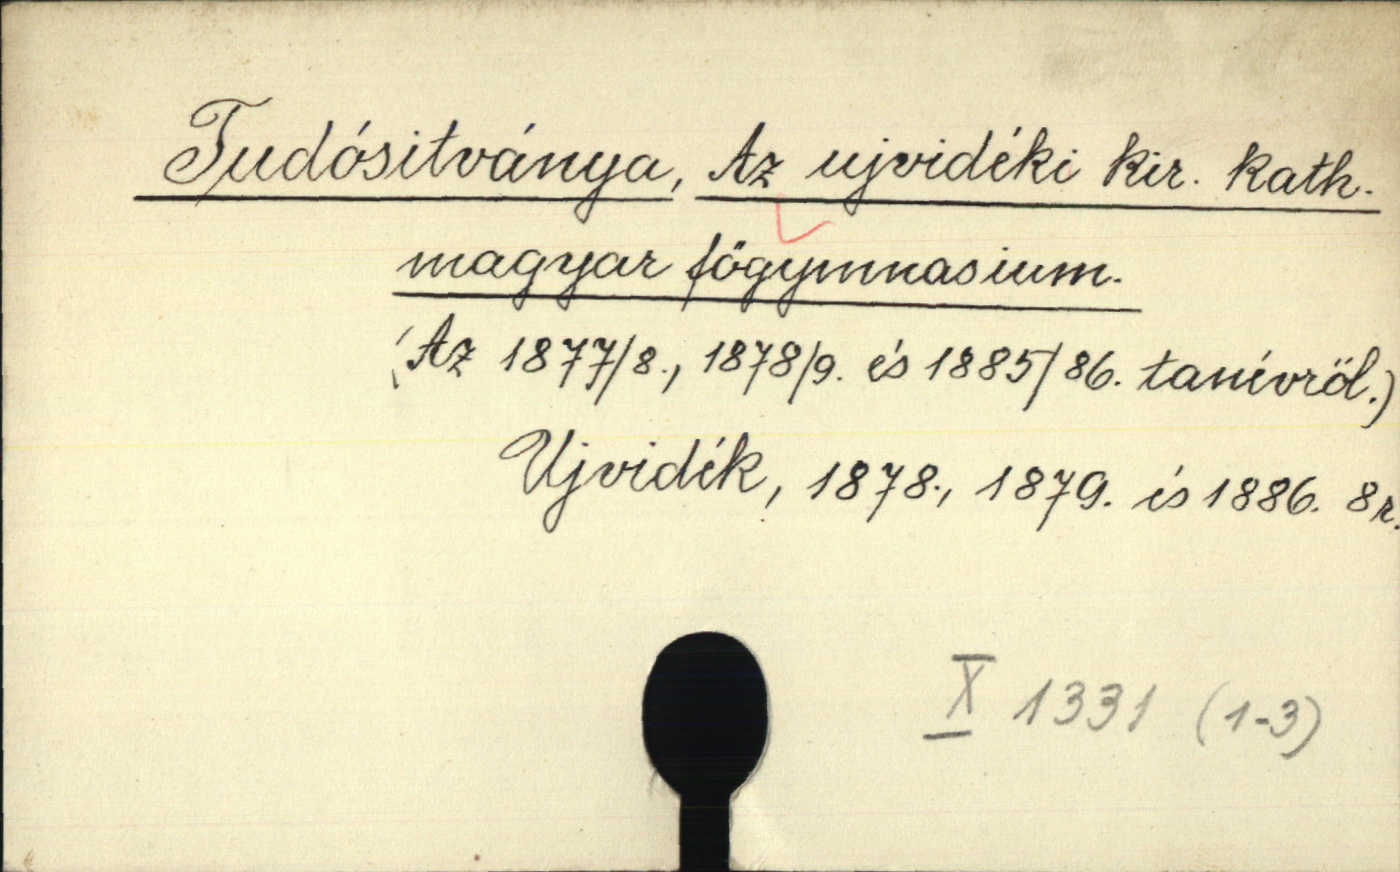 Tudósitványa, Az ujvidéki kir. kath.
magyar főgymnasium.
(Az 1877/8., 1878/9. és 1885/86. tanévről.)
Ujvidék, 1878., 1879. és 1886. 8r.
X 1331 (1-3)